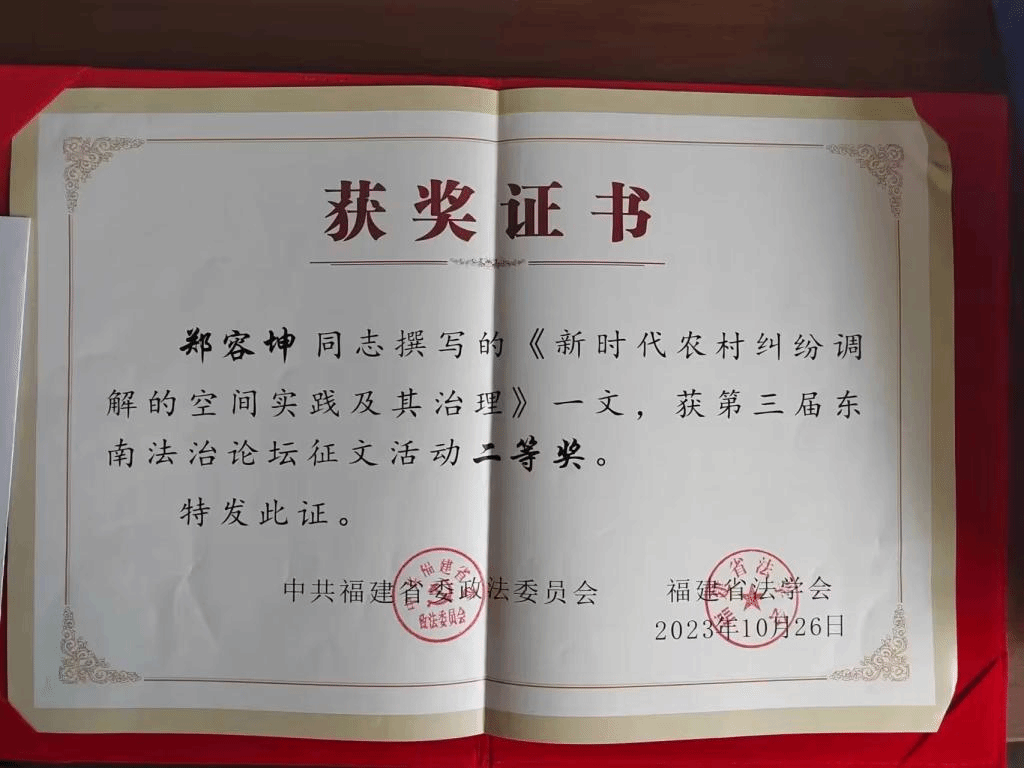 获奖证书
郑容坤同志撰写的《新时代农村纠纷调
解的空间实践及其治理》一文，获第三届东
南法治论坛征文活动二等奖。
特发此证。
中共福建省委政法委员会
福建省法学会
2023年10月26日
中共福建省委
政法委员会
福建省法学会